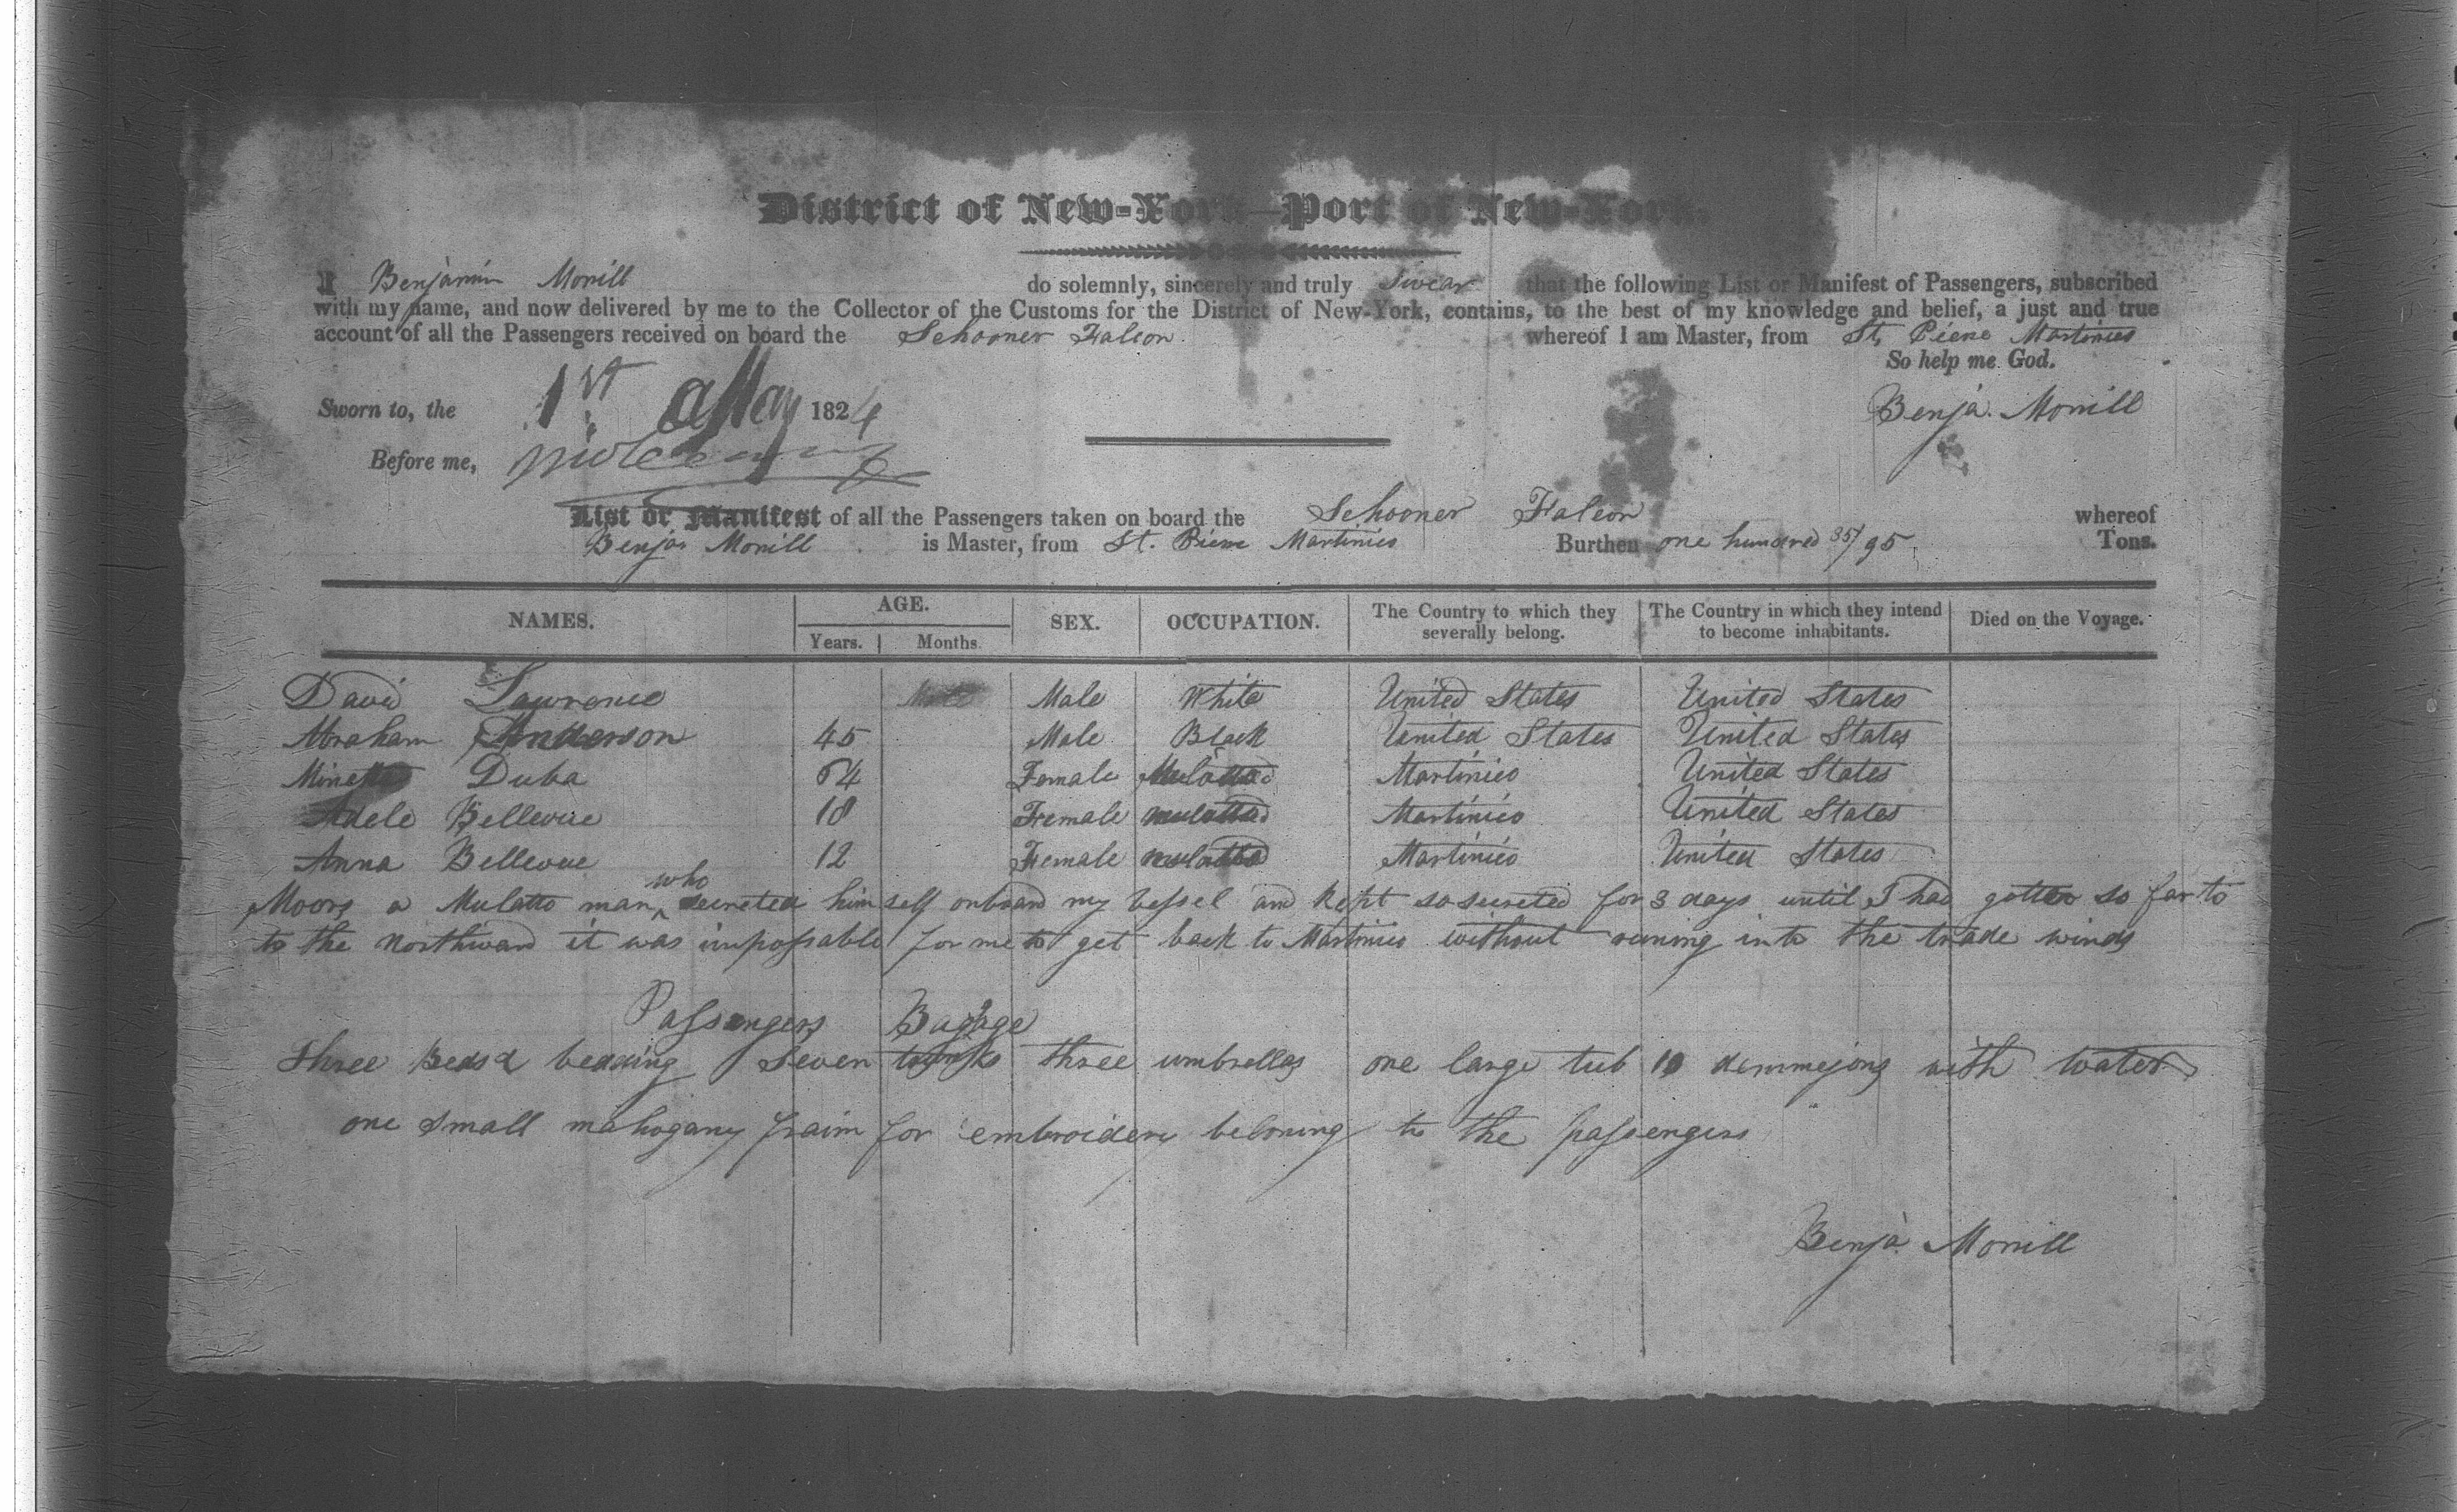 District of New-York—Port of New-York.
I Benjamin Morrill do solemnly, sincerely and truly Swear that the following List or Manifest of Passengers, subscribed
with my name, and now delivered by me to the Collector of the Customs for the District of New-York, contains, to the best of my knowledge and belief, a just and true
account of all the Passengers received on board the Schooner Falcon whereof I am Master, from St. Piere Martinico
So help me God.
Sworn to, the 1st May 1824
Benja. Morrill
Before me,
List or Manifest of all the Passengers taken on board the Schooner Falcon whereof
Benja Morrill is Master, from St. Piere Martinico Burthen one hundred 35/95 Tons.
NAMES. AGE. Years. Months. SEX. OCCUPATION. The Country to which they severally belong. The Country in which they intend to become inhabitants. Died on the Voyage.
David Lawrence Male White United States United States
Abraham Anderson 45 Male Black United States United States
Duba 64 Female Mulatto Martinico United States
Adele Bellevue 18 Female mulatto Martinico United States
Anna Bellevue 12 Female mulatto Martinico United States
Moors a Mulatto man who secreted him self onboard my vessel and kept so secreted for 3 days until I had gotten so far to
to the northward it was impossable for me to get back to Martinico without runing into the trade winds
Passengers Bagage
Three Beds & bedding Seven trunks three umbrellas one large tub 10 demmejons with water
one small mahogany fraim for embroidery beloning to the passengers
Benja Morrill